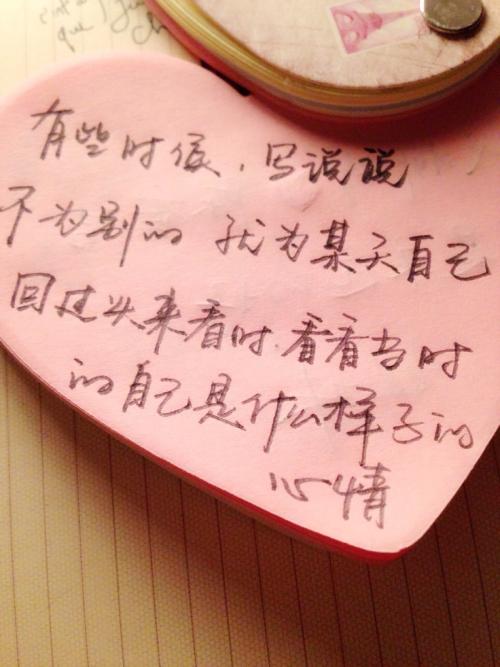 que
有些时候，写说说
不为别的 就为某天自己
回过头来看时.看看当时
的自己是什么样子的
心情